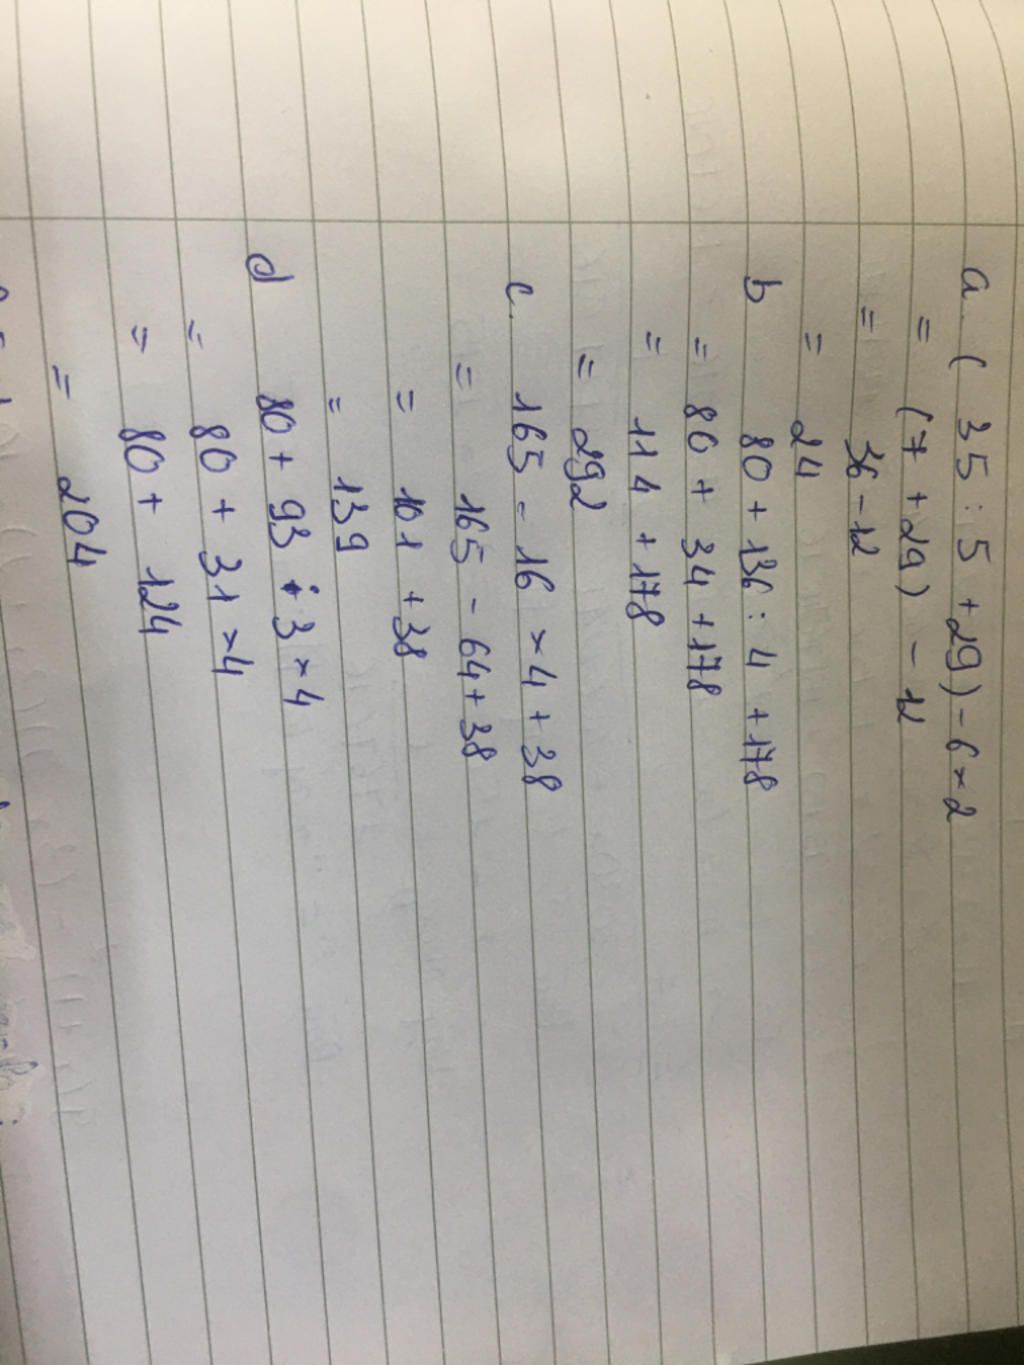 a. ( 35 : 5 + 29) - 6 × 2
= (7 + 29) - 12
= 36 - 12
= 24
b 80 + 136 : 4 + 178
= 80 + 34 + 178
= 114 + 178
= 292
c. 165 - 16 × 4 + 38
= 165 - 64 + 38
= 101 + 38
= 139
d 80 + 93 : 3 × 4
= 80 + 31 × 4
= 80 + 124
= 204